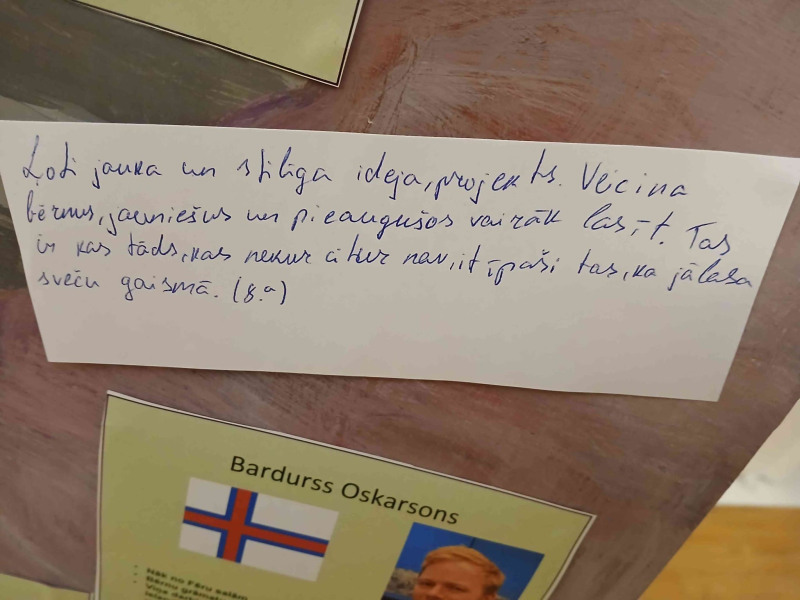 Ļoti jauka un stilīga ideja, projekts. Vēcina
bērnus, jauniešus un pieaugušos vairāk lasīt. Tas
ir kas tāds, kas nekur citur nav, it īpaši tas, ka jālasa
sveču gaismā. (8.a)
Bardurss Oskarsons
Nāk no Fēru salām
Bērnu grāmat